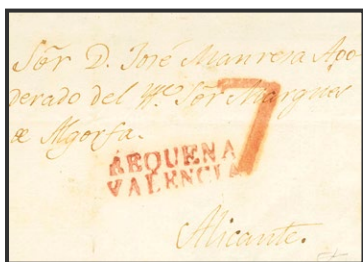 Sõr D. José Manresa Apo
derado del Mṛ Sor Marques
de Algorfa.
7
REQUENA
VALENCIA
Alicante.